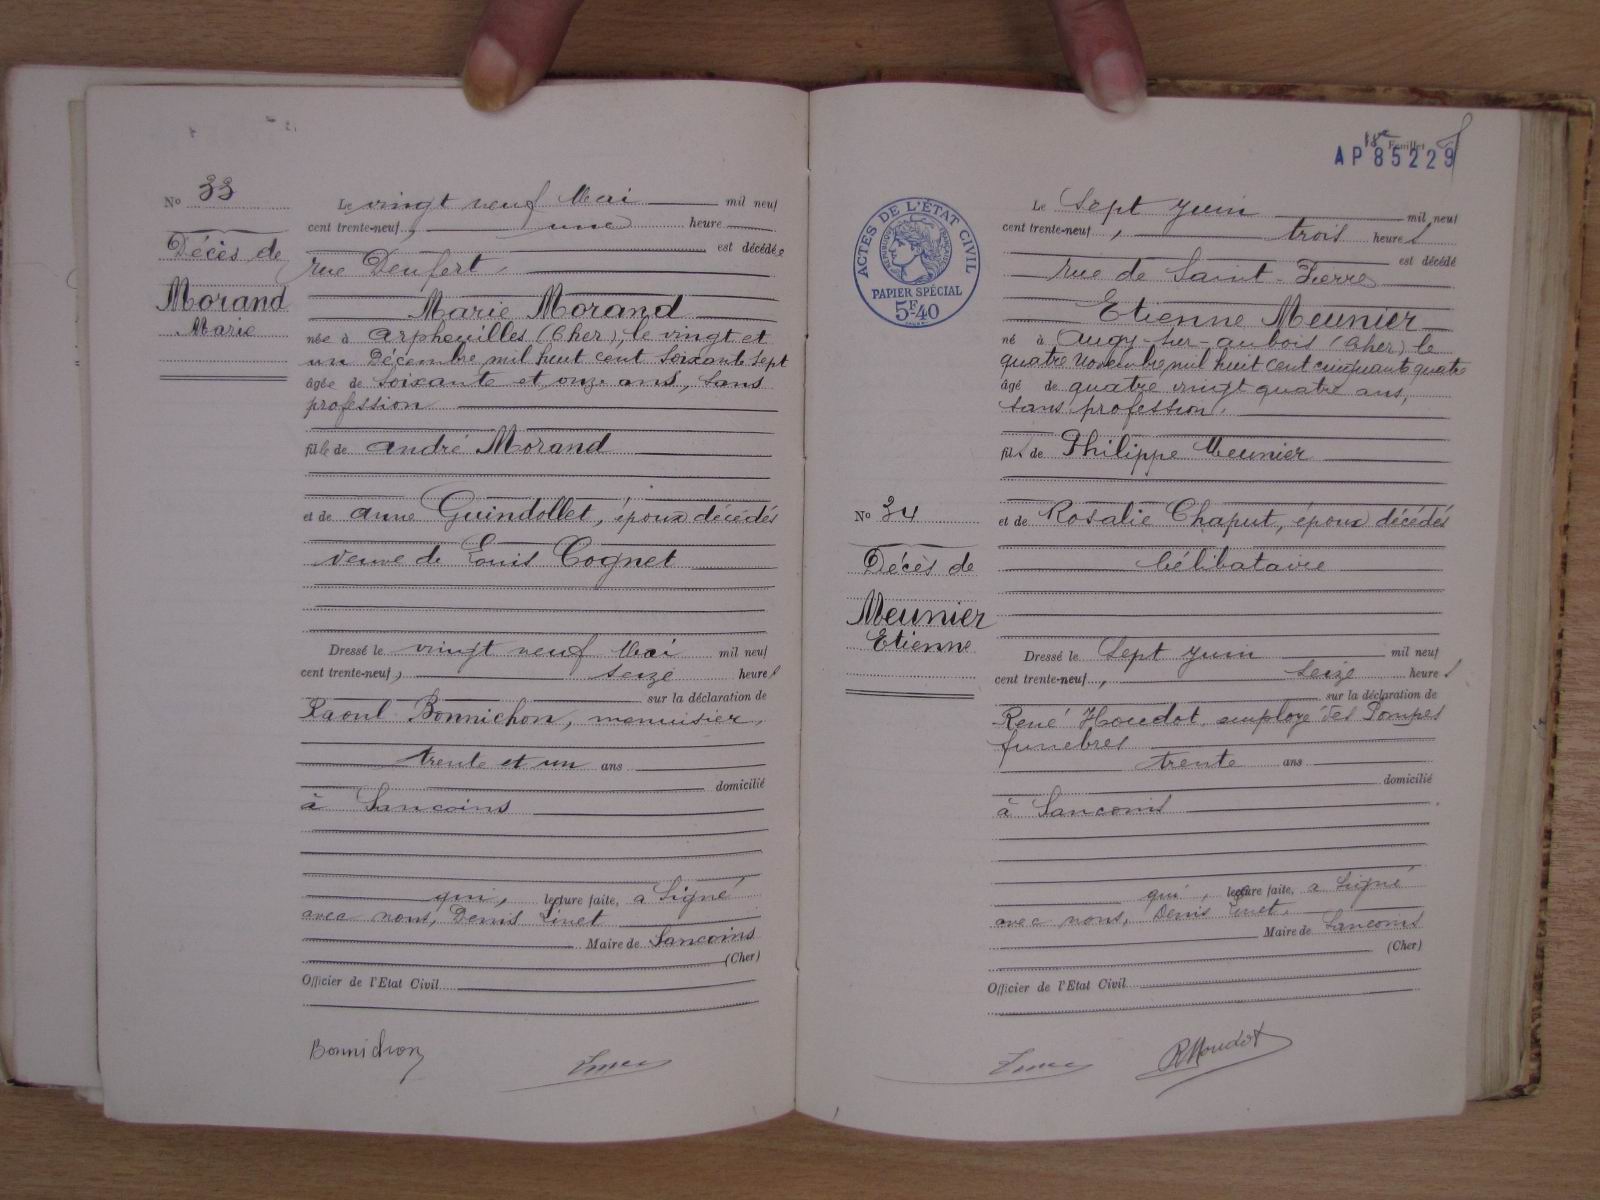 No 33
Décès de
Morand
Marie
Le vingt neuf Mai mil neuf
cent trente-neuf, une heure
est décédée
rue Denfert
Marie Morand
née à Arpheuilles (Cher), le vingt et
un Décembre mil huit cent soixante sept
âgée de soixante et onze ans, sans
profession
fille de André Morand
et de Anne Guindollet, époux décédés
veuve de Louis Cognet
Dressé le vingt neuf Mai mil neuf
cent trente-neuf, seize heures
sur la déclaration de
Raoul Bonnichon, menuisier,
trente et un ans
domicilié
à Sancoins
qui, lecture faite, a signé
avec nous, Denis Limet
Maire de Sancoins
(Cher)
Officier de l'Etat Civil
Bonnichon
Feuillet
AP85229
ACTES DE L'ÉTAT CIVIL
RÉPUBLIQUE FRANÇAISE
PAPIER SPÉCIAL
5F40
No 34
Décès de
Meunier
Etienne
Le Sept Juin mil neuf
cent trente-neuf, trois heures
est décédé
rue de Saint-Pierre
Etienne Meunier
né à Augy-sur-Aubois (Cher) le
quatre Novembre mil huit cent cinquante quatre
âgé de quatre vingt quatre ans,
sans profession.
fils de Philippe Meunier
et de Rosalie Chaput, époux décédés
Célibataire
Dressé le Sept Juin mil neuf
cent trente-neuf, seize heures
sur la déclaration de
René Houdot, employé des Pompes
funèbres
trente ans
domicilié
à Sancoins
qui, lecture faite, a signé
avec nous, Denis Limet,
Maire de Sancoins
(Cher)
Officier de l'Etat Civil
RHoudot